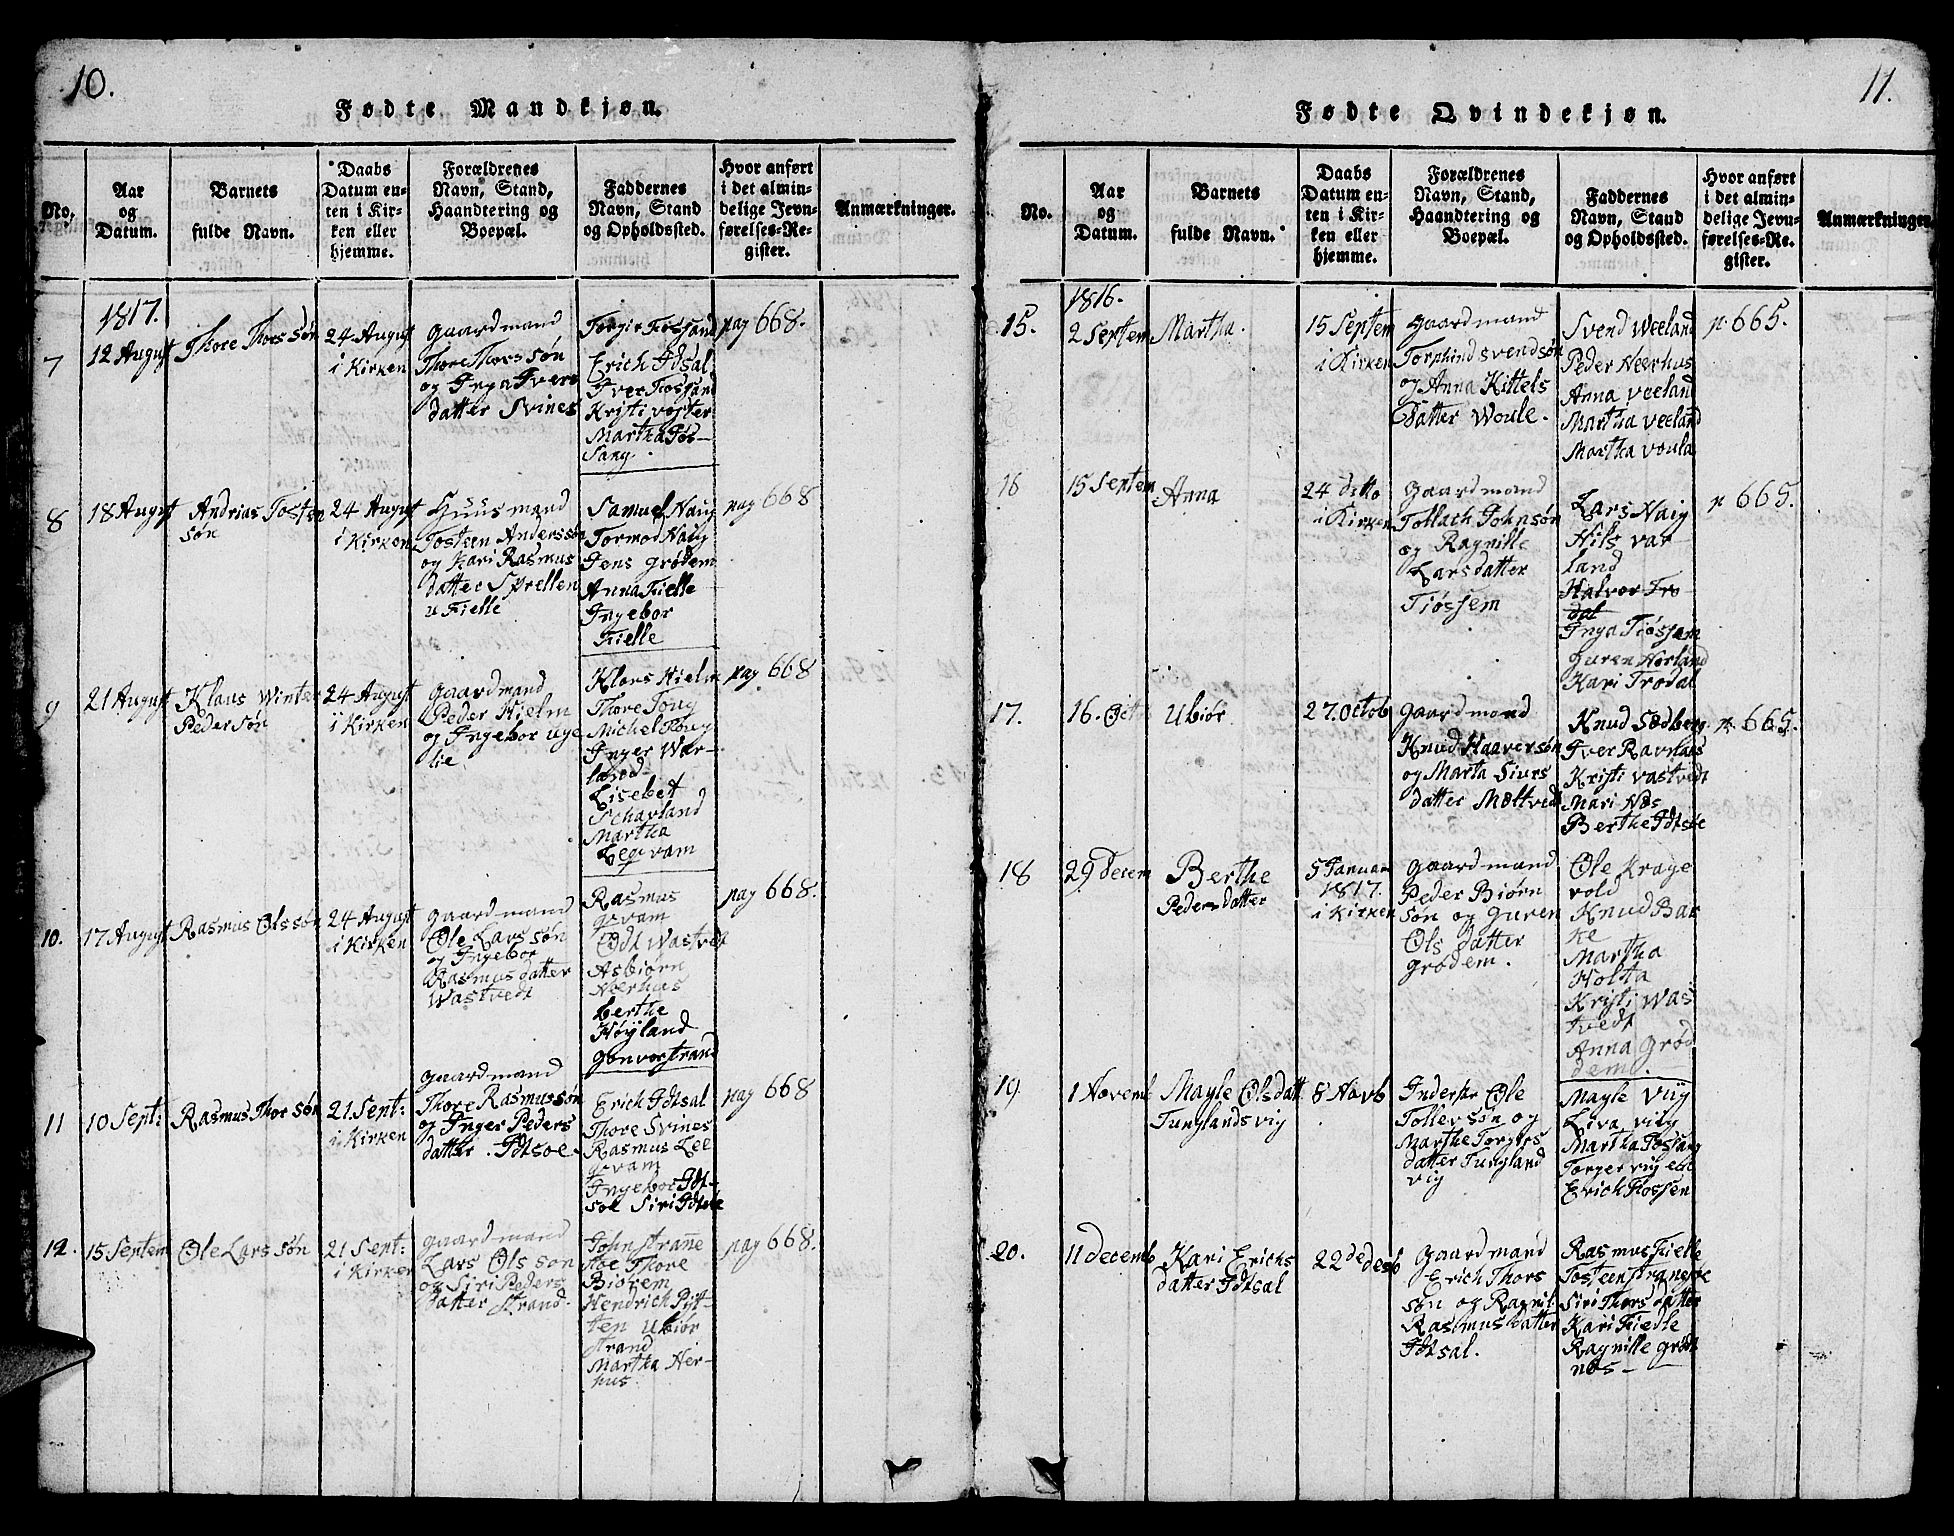 10.
Fødte Mandkjøn.
No.
Aar
og
Datum.
Barnets
fulde Navn.
Daabs
Datum en-
ten i Kir-
ken eller
hjemme.
Forældrenes
Navn, Stand,
Haandtering og
Boepæl.
Faddernes
Navn, Stand
og Opholdssted.
Hvor anført
i det almin-
delige Jevn-
førelses-Re-
gister.
Anmærkninger.
1817.
7
12 August
Thore Thorssøn
24 August
i Kirken
gaardmand
Thore Thorssøn
og Inga Ivers
datter Svines
Torgir Fossand
Erich Idsal
Iver Fossand
Kristi voster
Martha Fos-
sang.
pag 668.
8
18 August
Andrias Tosten
søn
24 August
i Kirken
Huusmand
Tosteen Anderssøn
og Kari Rasmus
datter Sprellen
u Fielle
Samuel Haug
Tormod Haug
Jens grødem
Anna Fielle
Ingebor
Fielle
pag 668
9
21 August
Klaus Winter
Pedersøn
24 August
i Kirken
gaardmand
Peder Hielm
og Ingebor uge
lie
Klars Hielm
Thore Toug
Michel Toug
Inger War-
land
Lisebet
Scharland
Martha
Legevam
pag 668
10.
17 August
Rasmus Olssøn
24 August
i Kirken
gaardmand
Ole Larssøn
og Ingebor
Rasmusdatter
Wastvedt
Rasmus
qvam
Odt Wastvedt
Asbiørn
Neerhus
berthe
Høyland
gonvorstrand
pag 668.
11
10 Sept:
Rasmus Thorsøn
21. Sept:
i Kirken
gaardmand
Thore Rasmussøn
og Inger Peders
datter Idsoe
Erich Idsal
Thore Svines
Rasmus Lee
qvam
Ingebor Id-
soe Siri Idsoe
pag 668
12.
15 Septem
Ole Larssøn
21 Sept:
i Kirken
gaardmand
Lars Olsson
og Siri Peders
datter Strand.
John stranne
Aoe Thore
Biørem
Hendrich Pyt-
ten Ubiør
strand
Martha Her-
hus.
pag 668.
11.
Fødte Qvindekjøn.
No.
Aar
og
Datum.
Barnets
fulde Navn.
Daabs
Datum en-
ten i Kir-
ken eller
hjemme.
Forældrenes
Navn, Stand,
Haandtering og
Boepæl.
Faddernes
Navn, Stand
og Opholdssted.
Hvor anført
i det almin-
delige Jevn-
førelses-Re-
gister.
Anmærkninger
1816.
15.
2 Septem
Martha.
15 Septem
i Kirken
gaardmand
Torphind Svendsøn
og Anna Kittels
datter Woule.
Svend Weeland
Peder Neerhus
Anna Veeland
Martha Veeland
Martha voula
p. 665.
16
15 Septem
Anna
24 ditto
i Kirken
gaardmand
Tollach Johnsøn
og Ragnille
Larsdatter
Tiøssem
Lars Haig
Nils var
land
Halvor Tro
dal
Inga Tiøssem
guren Horland
Kari Trodal
p 665.
17.
16. Octo
Ubiør
27. Octob
gaardmand
Knud Haaversøn
og Marta Siurs
datter Moltvedt
Knud Sædberg
Iver Ravnaas
Kristi vastvedt
Mari Nes
Berthe Idsøe
p. 665.
18
29 Decem
Berthe
Pedersdatter
5 Januar
1817.
i Kirken
gaardmand
Peder Biørn
søn og guren
Ols datter
grødem.
Ole Krage
vold
Knud Bar
ke
Martha
Holta
Kristi Was
tvedt
Anna grød
dem.
19.
1 Novemb
Magle Olsdatt
Tunglandsvig
8 Novb
Inderstr Ole
Tollevsøn og
Marthe Torgers
datter Tungland
vig
Magle Viig
Liva vilg
Martha Fossang
Torger vig eie
Erich Fossen
20.
11 Decemb
Kari Erichs
datter Idsal
22 dedesb
gaardmand
Erich Thors
søn og Ragnil
Rasmusdatter
Idsal.
Rasmus Fielle
Tosteen stranesse
Siri Thorsdatter
Kari Fiedle
Ragnille grødt
nes